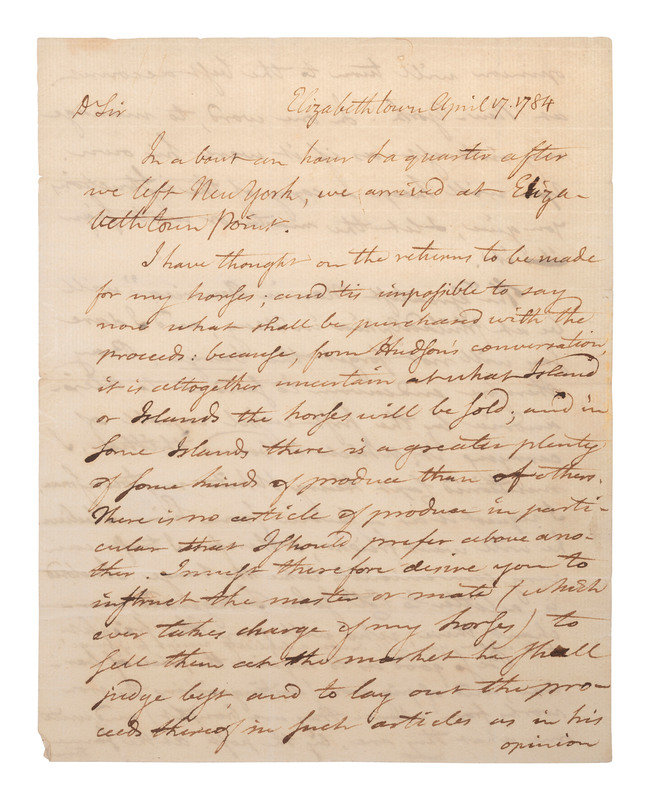 Dr Sir Elizabethtown April 17. 1784
In about an hour & a quarter after
we left New York, we arrived at Eliza-
beth town Point.
I have thought on the returns to be made
for my horses; and 'tis impossible to say
now what shall be purchased with the
proceeds: because, from Hudson's conversation,
it is altogether uncertain at what Island
or Islands the horses will be sold; and in
some Islands there is a greater plenty
of some kinds of produce than of others.
There is no article of produce in parti-
cular that I should prefer above ano-
ther. I must therefore desire you to
instruct the master or mate (which
ever takes charge of my horses) to
sell them at the market he shall
judge best, and to lay out the pro-
ceeds thereof in such articles as in his
opinion